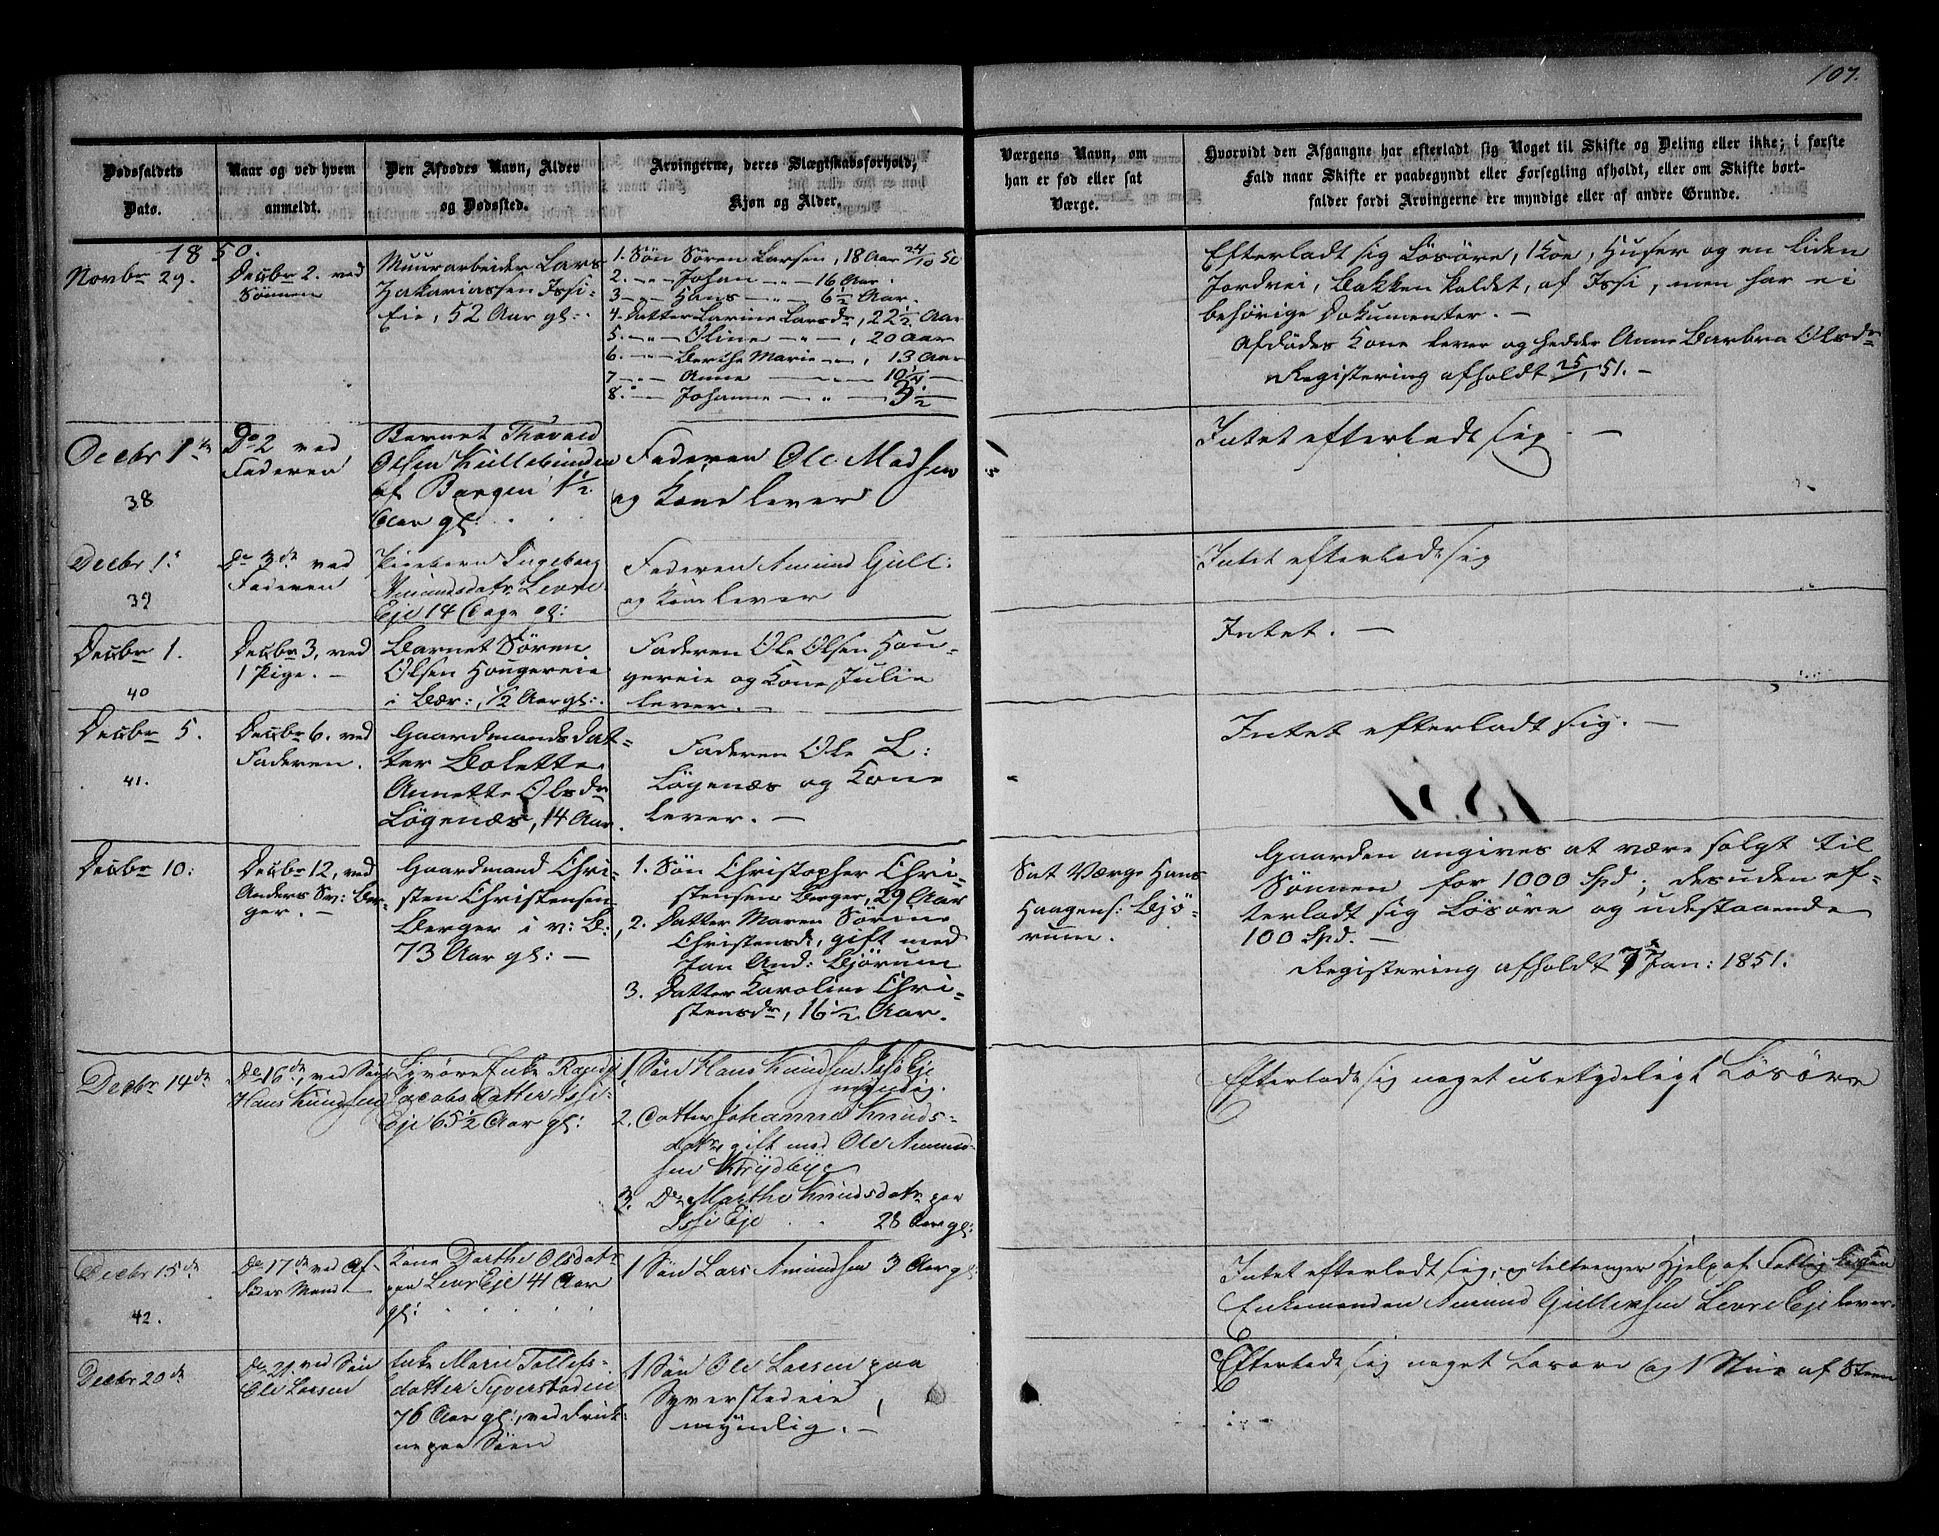 107.
Dødsfaldets
Dato.
Naar og ved hvem
anmeldt.
Den Afdødes Navn, Alder
og Dødssted.
Arvingerne, deres Slægtskabsforhold,
Kjøn og Alder.
Værgens Navn, om
han er fød eller sat
Værge.
Hvorvidt den Afgangne har efterladt sig Noget til Skifte og Deling eller ikke; i første
Fald naar Skifte er paabegyndt eller Forsegling afholdt, eller om Skifte bort-
falder fordi Arvingerne ere myndige eller af andre Grunde.
1850.
Novbr 29.
Decbr 2. ved
Sønnen
Muurarbeider Lars
Zakariassen Issi-
Eie, 52 Aar gl:
1. Søn Søren Larsen, 18 Aar 24/10 50
2. -"- Johan -"- 16 Aar.
3 -"- Hans -"- 6½ Aar.
4. Datter Larine Larsdr, 22½ Aar
5. -"- Oline -"-, 20 Aar
6. -"- Berthe Marie -"-, 13 Aar
7 -"- Anne — 10¼ —
8. -"- Johanne -"- 3½ —
Efterladt sig Løsøre, 1 Koe, Huser og en liden
Jordvei, Bakken kaldet, af Issi, men har ei
behørige Dokumenter. —
Afdødes Kone lever og hedder Anne Barbra Olsdr
Registering afholdt 25/1 51. —
Decbr 1ste
38
Do 2 ved
Faderen
Barnet Thovald
Olsen
af 1½
Aar gl:
Faderen Ole Madsen
og Kone lever
Intet efterladt sig —
Decbr 1.
39
Do 3de ved
Faderen
Pigebarn Ingeborg
Amundsdatr Levre
Eje 14 Dage gl:
Faderen Amund Gull:
og Kone lever
Intet efterladt sig
Decbr 1.
40
Decbr 3, ved
1 Pige. —
Barnet Søren
Olsen Hougereie
i Bær:, ½ Aar gl:
Faderen Ole Olsen Hou-
gereie og Kone Julie
lever. —
Intet. —
Decbr 5.
41.
Decbr 6. ved
Faderen.
Gaardmandsdat-
ter Bolette
Annette Olsdr
Løgenæs, 14 Aar.
Faderen Ole L:
Løgenæs og Kone
lever. —
Intet efterladt sig. —
Decbr 10:
Decbr 12, ved
Anders Sv: Ber-
ger. —
Gaardmand Chri-
sten Christensen
Berger i v: B:
73 Aar gl: —
1. Søn Christopher Chri-
stensen Berger, 29 Aar
2. Datter Maren Sørine
Christensdr, gift med
Jan And: Bjørum
3. Datter Karoline Chri-
stensdr, 16½ Aar.
Sat Værge Hans
Haagens: Bjø-
rum.
Gaarden angives at være solgt til
Sønnen for 1000 Spd; desuden ef-
terladt sig Løsøre og udestaaende
100 Spd. —
Registering afholdt 7de Jan: 1851.
Decbr 14de
Do 16de, ved Søn
Hans Knudsen
Enke Randi
Jacobsdatter Issi-
Eje 65½ Aar gl:
1. Søn Hans Knudsen Issi Eje
myndig.
2. Datter Johanne Knuds-
datr, gift med Ole Amund-
sen
3. Do Marthe Knudsdatr paa
Issi Eje 28 Aar gl:
Efterladt sig noget ubetydeligt Løsøre
Decbr 15de
42.
Do 17de ved Af-
dødes Mand
Kone Dorthe Olsdatr
paa Levre Eje 41 Aar
gl:
1 Søn Lars Amundsen 3 Aar gl
Intet efterladt sig, og tiltrenger Hjelp af Fattig
Enkemanden Amund Gulliksen Levre Eje lever.
Decbr 20de
Do 21. ved Søn
Ole Larsen
Enke Marie Tollefs-
datter Syverstadeie
76 Aar gl:, ved
paa Søen
1 Søn Ole Larsen paa
Syverstadeie,
myndig. —
Efterladt sig noget Løsøre og 1 Stue af Steen